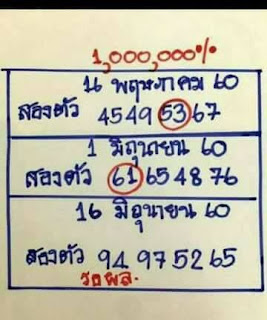 1,000,000%
16 พฤษภาคม 60
สองตัว 45 49 53 67
1 มิถุนายน 60
สองตัว 61 65 48 76
16 มิถุนายน 60
สองตัว 94 97 52 65
รอผล.